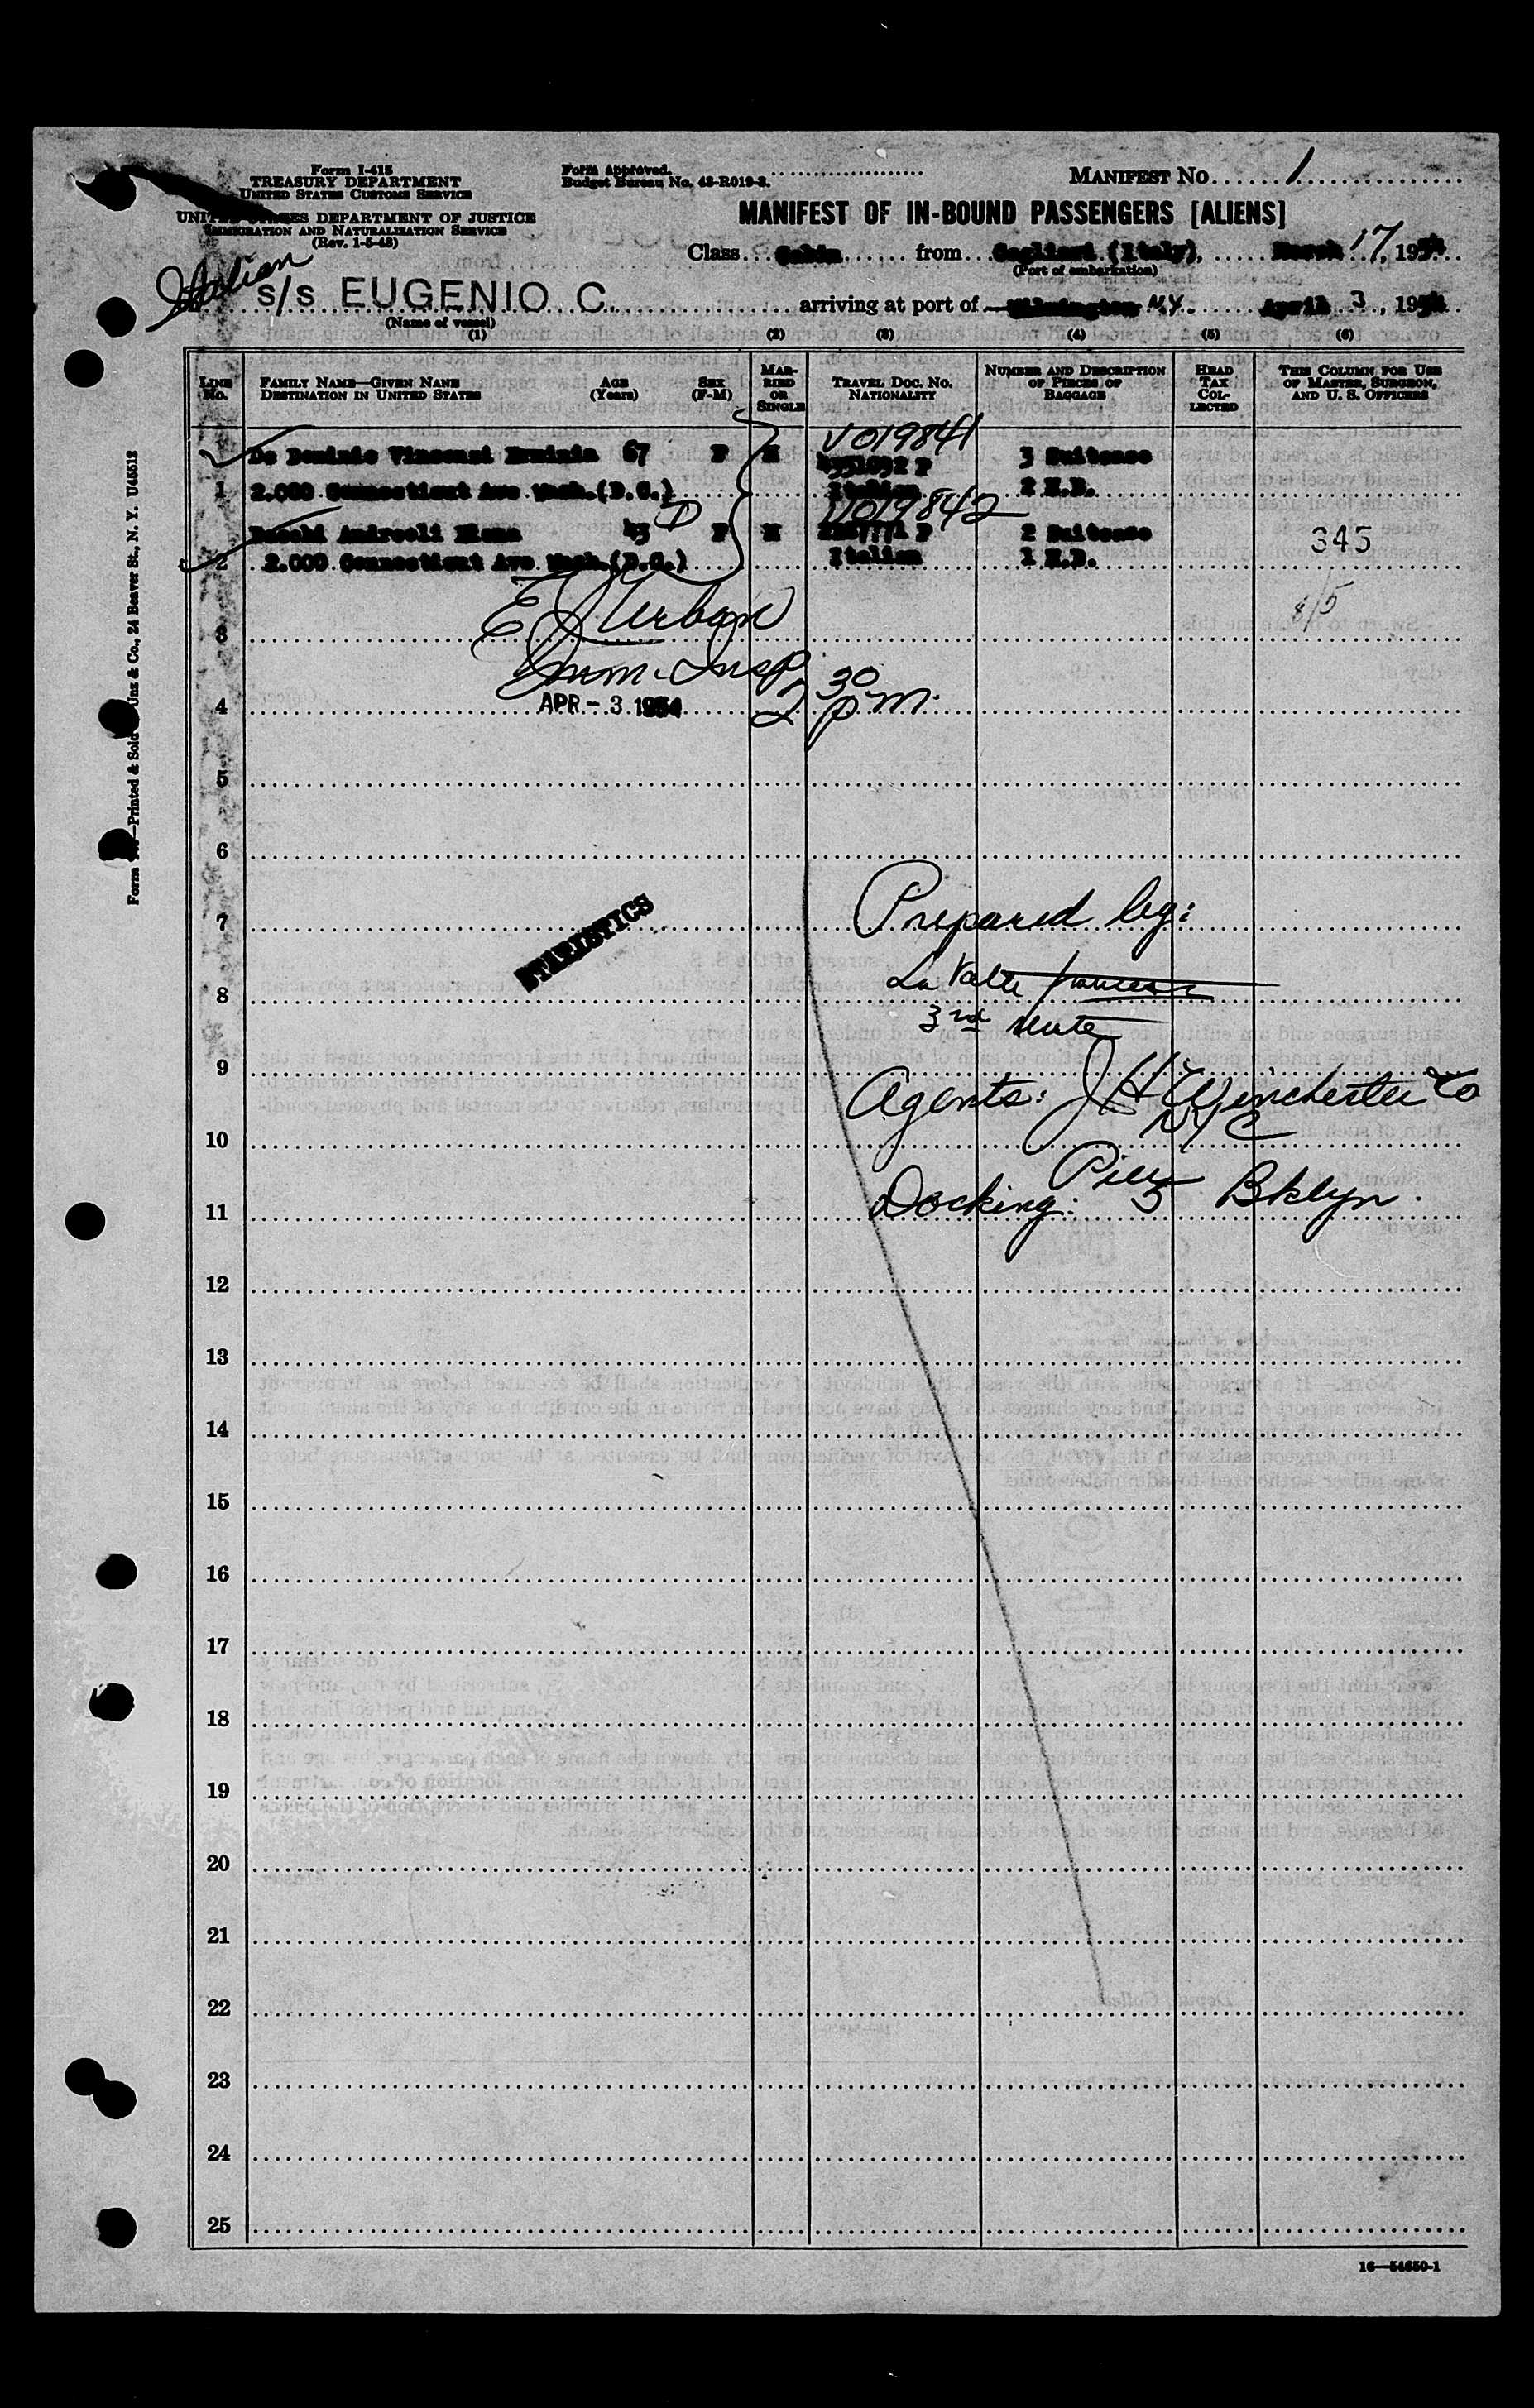 Form I-415
TREASURY DEPARTMENT
UNITED STATES CUSTOMS SERVICE
UNITED STATES DEPARTMENT OF JUSTICE
IMMIGRATION AND NATURALIZATION SERVICE
(Rev. 1-5-48)
Form Approved.
Budget Bureau No. 43-R019-3.
MANIFEST NO. 1
MANIFEST OF IN-BOUND PASSENGERS [ALIENS]
Class Cabin from Cagliari (Italy), March 17, 1954
(Port of embarkation)
Italian
S/S EUGENIO C. arriving at port of Wilmington NY. April 3, 1954
(Name of vessel)
(1) (2) (3) (4) (5) (6)
LINE NO.
FAMILY NAME—GIVEN NAME
DESTINATION IN UNITED STATES
AGE (Years)
SEX (F-M)
MARRIED OR SINGLE
TRAVEL DOC. NO.
NATIONALITY
NUMBER AND DESCRIPTION OF PIECES OF BAGGAGE
HEAD TAX COLLECTED
THIS COLUMN FOR USE OF MASTER, SURGEON, AND U. S. OFFICERS
V019841
De Dominio Vincenzi 67 F M P 3 Suitcase
1 2.000 Connecticut Ave Wash.(D.C.) Italian 2 H.B.
V019842
Andreoli 45 D F M P 2 Suitcase 345
2 2.000 Connecticut Ave Wash.(D.C.) Italian 1 H.B.
4/5
3 E J Urban
Imm. Insp
4 APR - 3 1954 2 30 pm.
5
6
7 Prepared by:
STATISTICS
8 La Valle
3rd Mate
9
Agents: J H Winchester & Co
10 NYC
11 Docking: Pier 5 Bklyn.
12
13
14
15
16
17
18
19
20
21
22
23
24
25
16—54650-1
Unz & Co., 24 Beaver St., N. Y. U45512